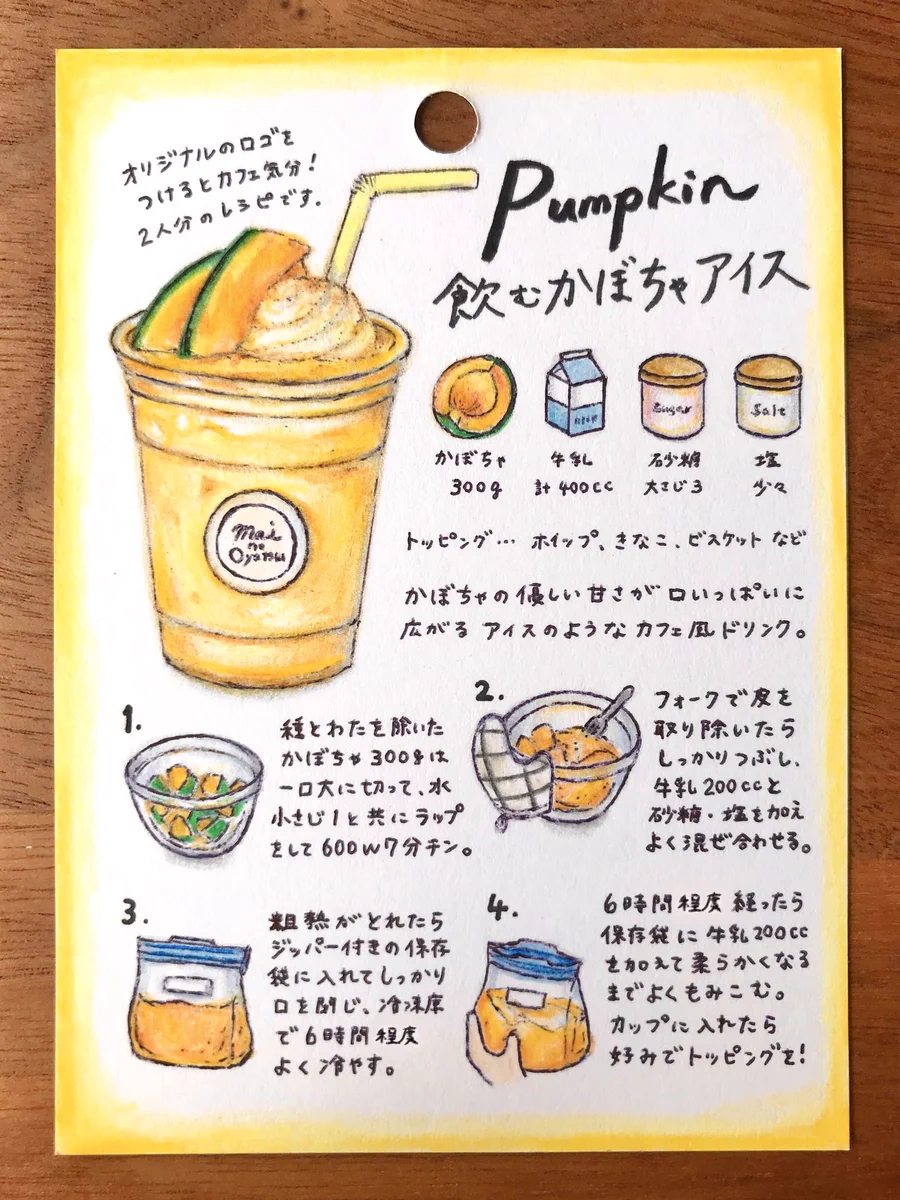 オリジナルのロゴを
つけるとカフェ気分!
2人分のレシピです.
Pumpkin
飲むかぼちゃアイス
Sugar
Salt
かぼちゃ
300g
牛乳
計400cc
砂糖
大さじ3
塩
少々
トッピング… ホイップ、きなこ、ビスケットなど
かぼちゃの優しい甘さが口いっぱいに
広がる アイスのようなカフェ風ドリンク。
Mai
no
Oyatsu
1.
種とわたを除いた
かぼちゃ300gは
一口大に切って、水
小さじ1と共にラップ
をして600w7分チン。
2.
フォークで皮を
取り除いたら
しっかりつぶし、
牛乳200ccと
砂糖・塩を加え
よく混ぜ合わせる。
3.
粗熱がとれたら
ジッパー付きの保存
袋に入れてしっかり
口を閉じ、冷凍庫
で6時間程度
よく冷やす。
4.
6時間程度経ったら
保存袋に牛乳200cc
を加えて柔らかくなる
までよくもみこむ。
カップに入れたら
好みでトッピングを!